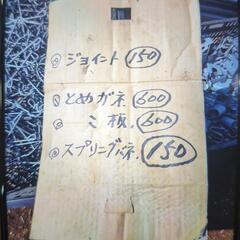 ◎ ジョイント 150
◎ とめガネ 600
◎ 〃 板 600
◎ スプリングバネ. 150